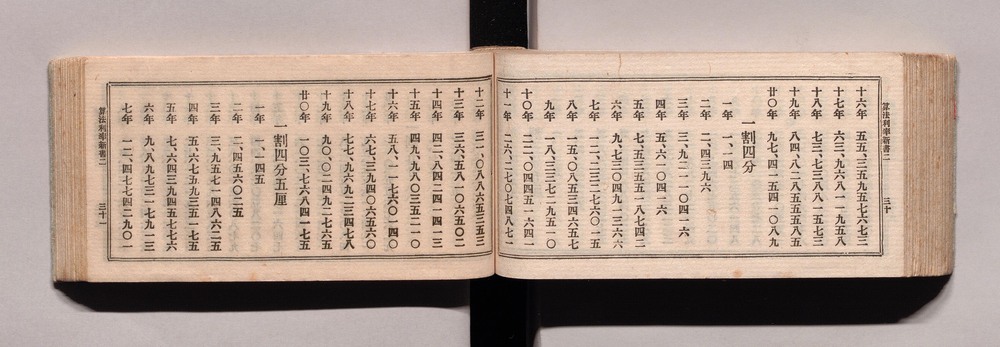 算法利率新書二 三十
十六年 五五、三五九五七六七三
十七年 六三、九六八一一九五八
十八年 七三、七三八八一五七三
十九年 八四、八二八五五五八五
廿〇年 九七、四一五四一〇八九
一割四分
一年 一、一四
二年 二、四三九六
三年 三、九二一一〇四一六
四年 五、六一〇四一六
五年 七、五三五五一八七四二
六年 九、七三〇四九一三六六
七年 一二、二三二七六〇一五
八年 一五、〇八五三四六五七
九年 一八、三三七二九五一〇
十〇年 二二、〇四四五一六四一
十一年 二六、二七〇七四八七一
十二年 三一、〇八八六五三五三
十三年 三六、五八一〇六五〇二
十四年 四二、八四二四一四一三
十五年 四九、九八〇三五二一〇
十六年 五八、一一七六〇一四〇
十七年 六七、三九四〇六五六〇
十八年 七七、九六九二三四七八
十九年 九〇、〇二四九二七六五
廿〇年 一〇三、七六八四一七五
一割四分五厘
一年 一、一四五
二年 二、四五六〇二五
三年 三、九五七一四八六二五
四年 五、六七五九三五一七五
五年 七、六四三九四五七七六
六年 九、八九七三一七九一三
七年 一二、四七七四二九〇一
算法利率新書二 三十一